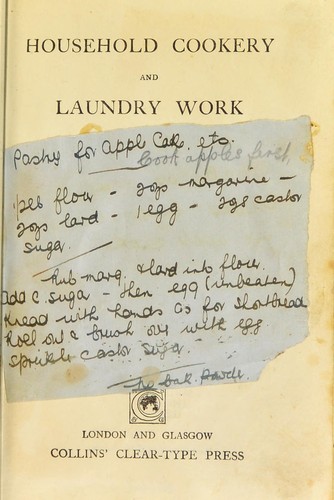 HOUSEHOLD COOKERY
AND
LAUNDRY WORK
Pastry for Apple Cake etc.
Cook apples first.
½lb flour – 2ozs margarine –
2ozs lard – 1 egg – 2ozs castor
sugar.
Rub marg. & lard into flour
add c. suga – then egg (unbeaten)
Knead with hands as for shortbread
Roll out & brush over with egg
Sprinkle castor suga.
No bak. powder
LONDON AND GLASGOW
COLLINS' CLEAR-TYPE PRESS